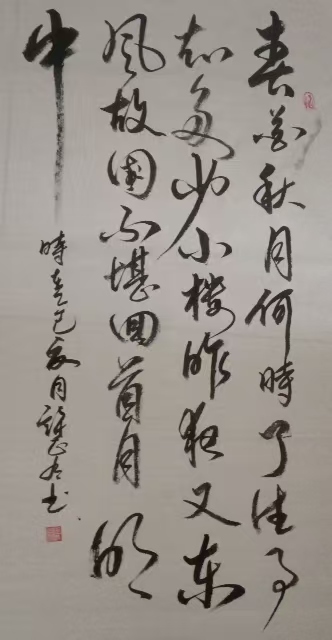 春花秋月何時了往事
知多少小楼昨夜又東
風故國不堪回首月明
中
時在巳夏月书